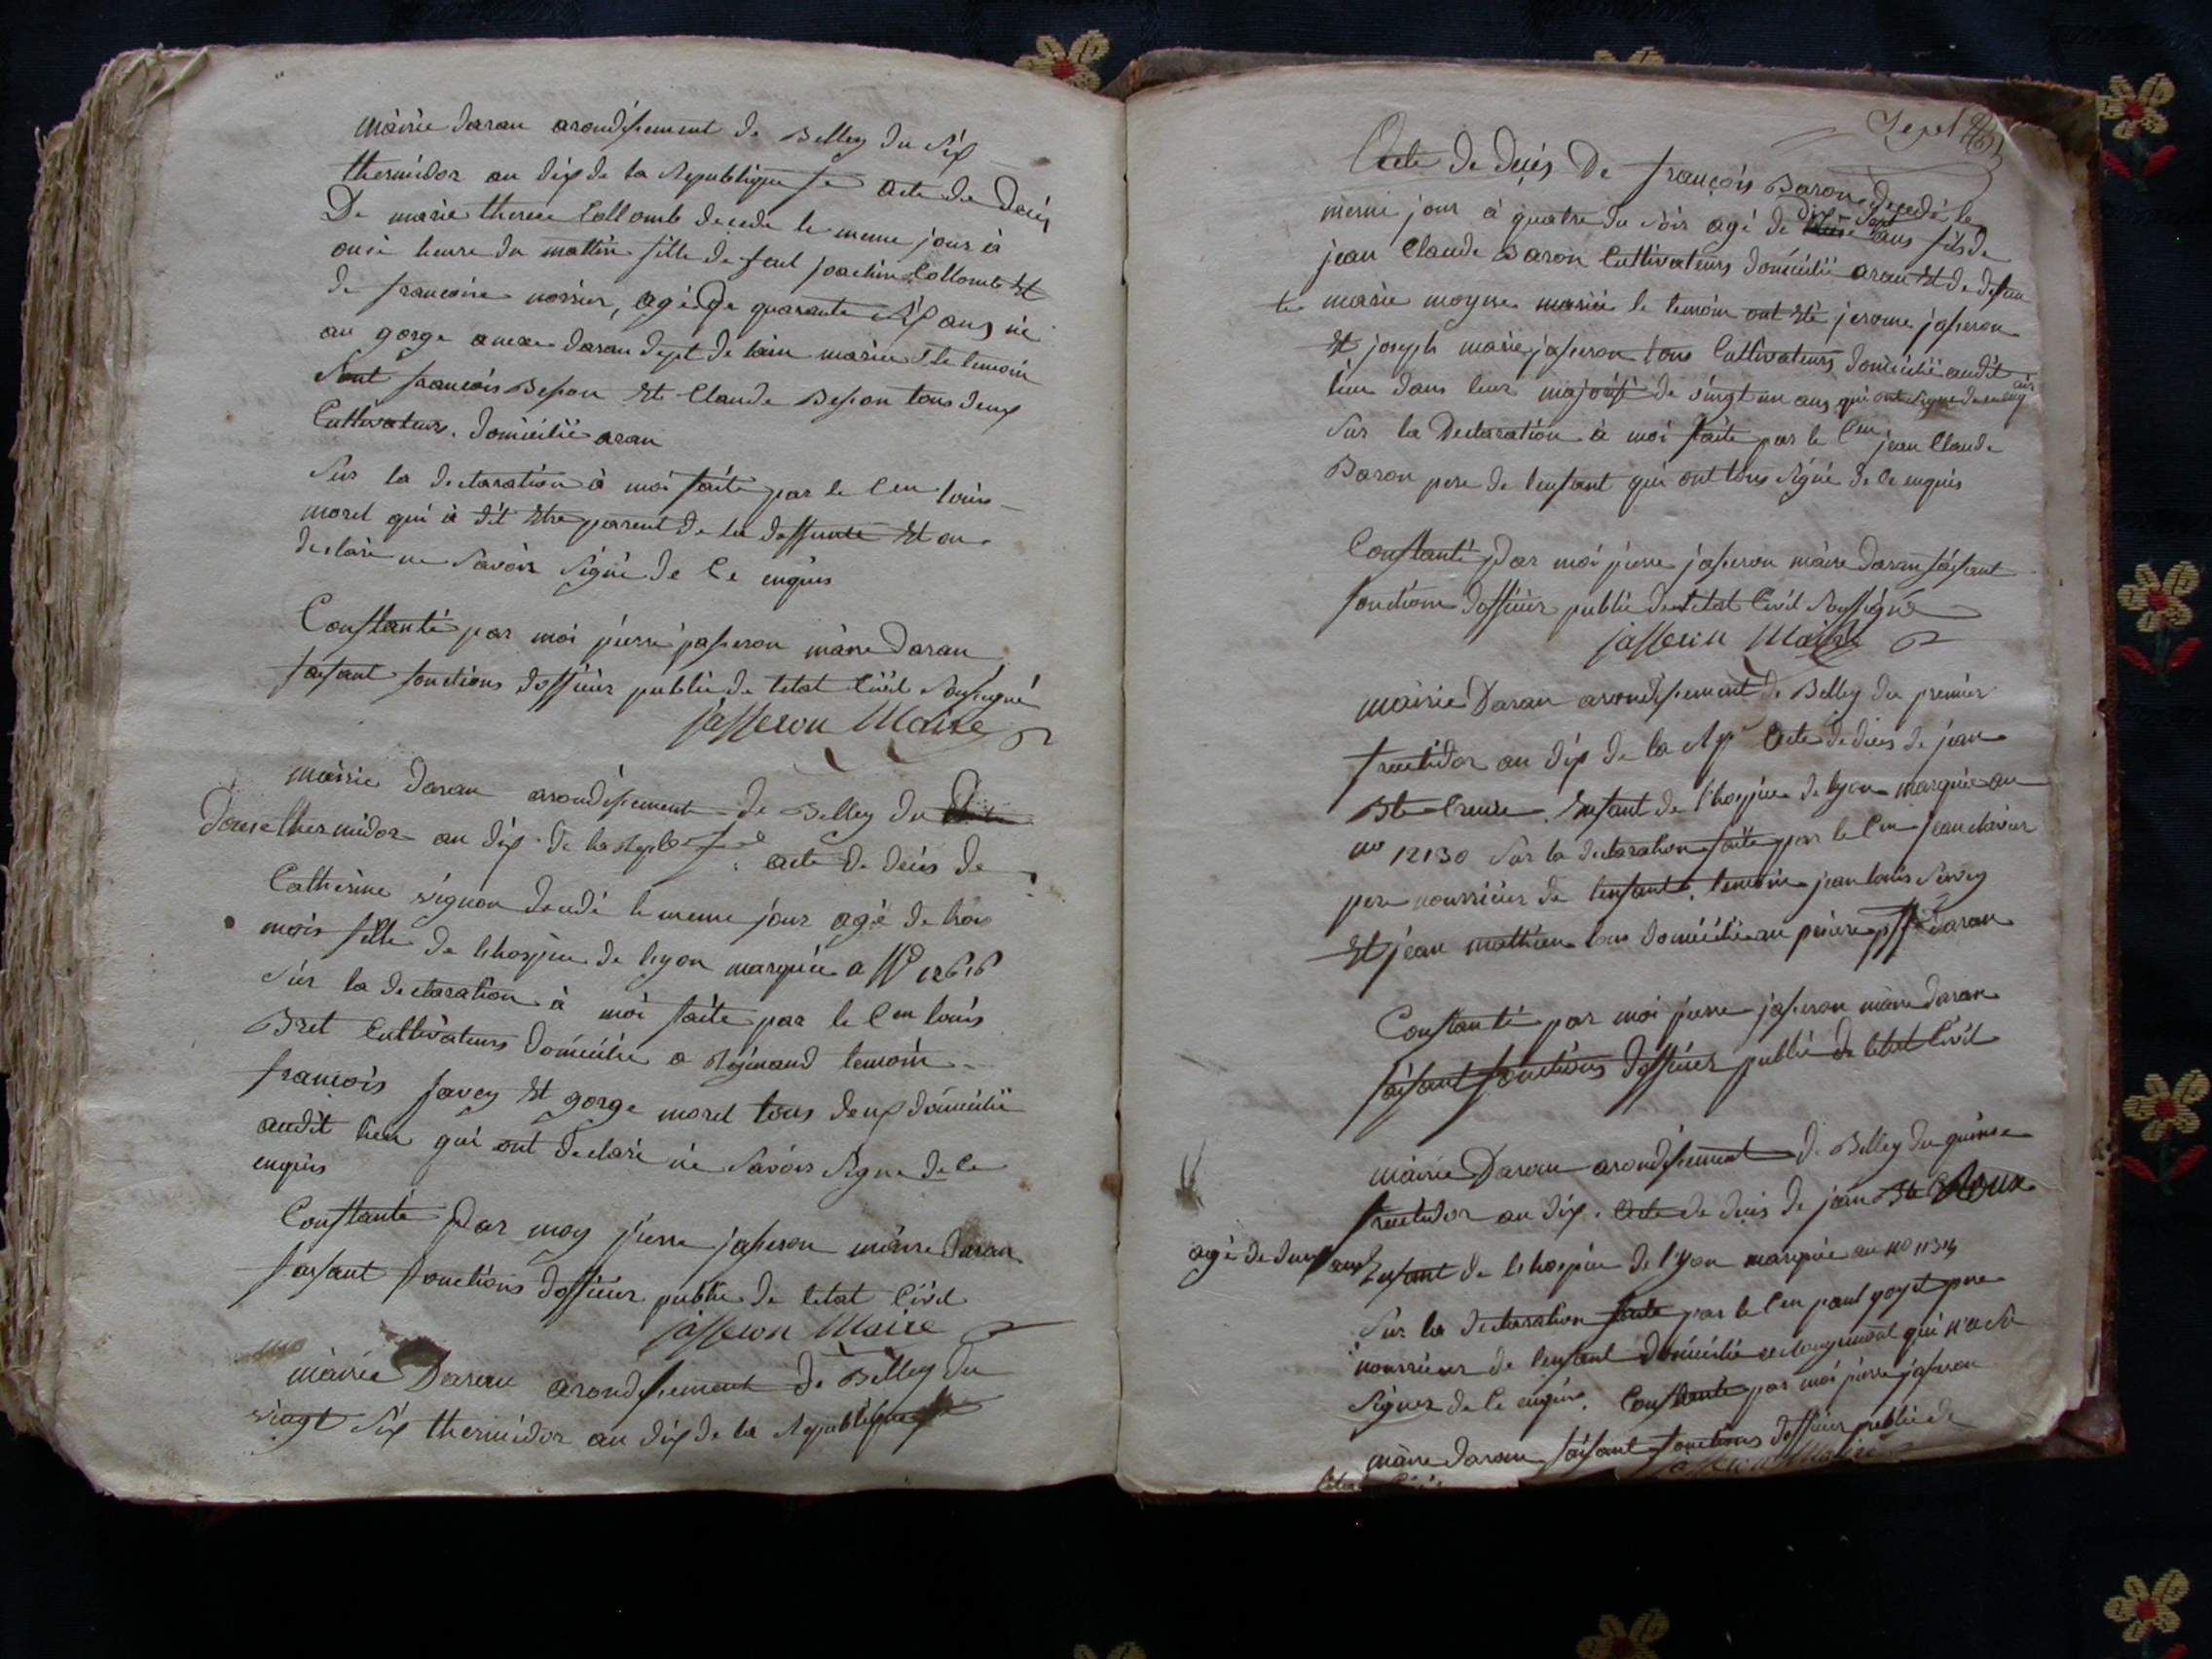 mairie daran arondissement de Belley du six
thermidor an dix de la Republique fse acte de deces
De marie therese Collomb decede le meme jour à
onse heure du mattin fille de feut joachim Collomb Et
de francoise, agé de quarante six ans né
au gorge anexe daran dept de lain mariée le temoin
Sont francois Besson Et Claude Besson tous deux
Cultivateurs. domicilié aran
Sur la declaration à moi faite par le Cen louis
morel qui à dit Etre parent de la deffunte Et on
declaré ne Savoir Signé de Ce enquis
Constanté par moi pierre jasseron maire daran
faisant fonctions dofficier public de letat Civil Soussigné
jasseron Maire
mairie daran arondissement de Belley du
douse thermidor an dix de la Repbe fse acte de deces de
Catherine vignon decedé le meme jour agé de trois
mois fille de lhospice de lyon marquée a No 12616
Sur la declaration à moi faite par le Cen louis
Bret Cultivateurs domicilié a Reginand temoin
francois savey Et gorge morel tous deux domicilié
audit lieu qui ont declaré ne Savoir Signe de Ce
enquis
Constanté Par moy pierre jasseron maire daran
faisant fonctions dofficier public de letat Civil
jasseron Maire
mairie Daran arondissement de Belley du
vingt Six thermidor an dix de la Republique
Acte de deces De françois Baron decedé le
meme jour à quatre du soir agé de dix sept ans fils de
jean Claude Baron Cultivateurs domicilié aran Et de defun
te marie moyne mariée le temoin ont Eté jerome jasseron
Et joseph marie jasseron tous Cultivateurs domicilié audit
lieu dans leur majorité de vingt un ans qui ont signe de ce enquis
Sur la Declaration à moi faite par le Cen jean Claude
Baron pere de lenfant qui ont tous Signé de Ce enquis
Constanté Par moi pierre jasseron maire daran faisant
fonctions dofficier public de letat Civil Soussigné
jasseron Maire
mairie Daran arondissement de Belley du premier
fructidor an dix de la Rp Acte de deces de jean
Bte Creuse. Enfant de lhospice de lyon marquée au
no 12130 Sur la declaration faite par le Cen jean
pere nourricier de lenfant. temoin jean louis Savey
Et jean mathieu tous domicilié au daran
Constanté par moi pierre jasseron maire daran
faisant fonctions dofficier public de letat Civil
mairie Daran arondissement de Belley du quinse
fructidor an dix. Acte de deces de jean Bte Roux
agé de deux ans Enfant de lhospice de lyon marquée au no
Sur la declaration faite par le Cen paul goyet pere
nourricier de lenfant domicilié a longrimont qui n'a Su
Signer de Ce enquis. Constanté par moi pierre jasseron
maire daran faisant fonctions dofficier public de
jasseron Maire